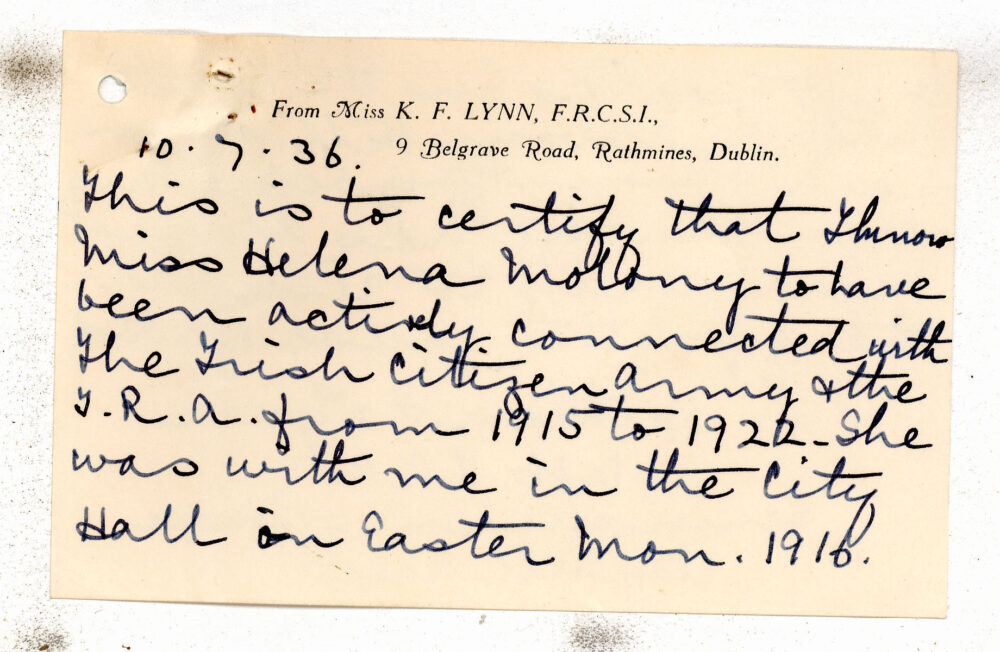 From Miss K. F. LYNN, F.R.C.S.I.,
9 Belgrave Road, Rathmines, Dublin.
10.7.36.
This is to certify that I know
Miss Helena Molony to have
been actively connected with
the Irish Citizen Army & the
I.R.A. from 1915 to 1922. She
was with me in the City
Hall on Easter Mon. 1916.